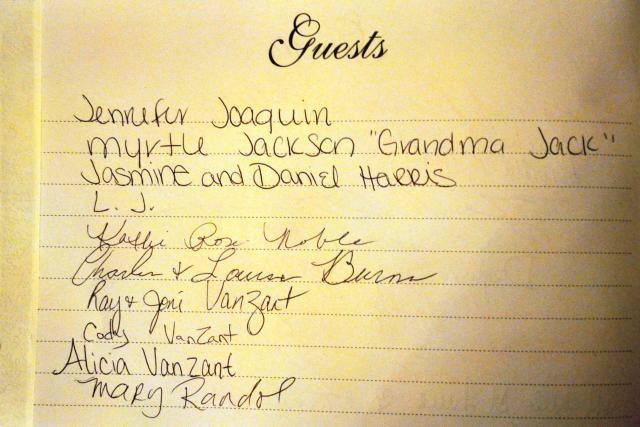 Guests
Jennifer Joaquin
Myrtle Jackson "Grandma Jack"
Jasmine and Daniel Harris
L. J.
Rose Noble
Charles & Louise Burns
Ray & Joni VanZant
Cody VanZant
Alicia Vanzant
Mary Randol